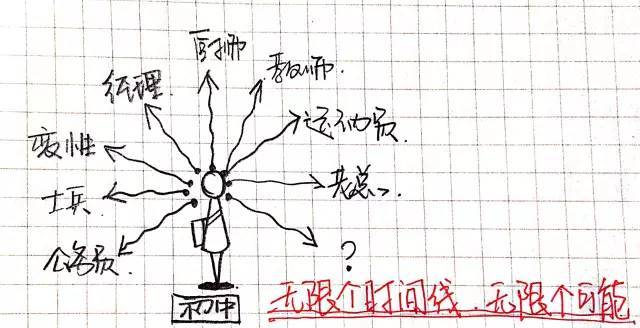 厨师
教师.
经理.
运动员
变性
老总、
士兵
公务员.
?
初中
无限个时间线.无限个可能